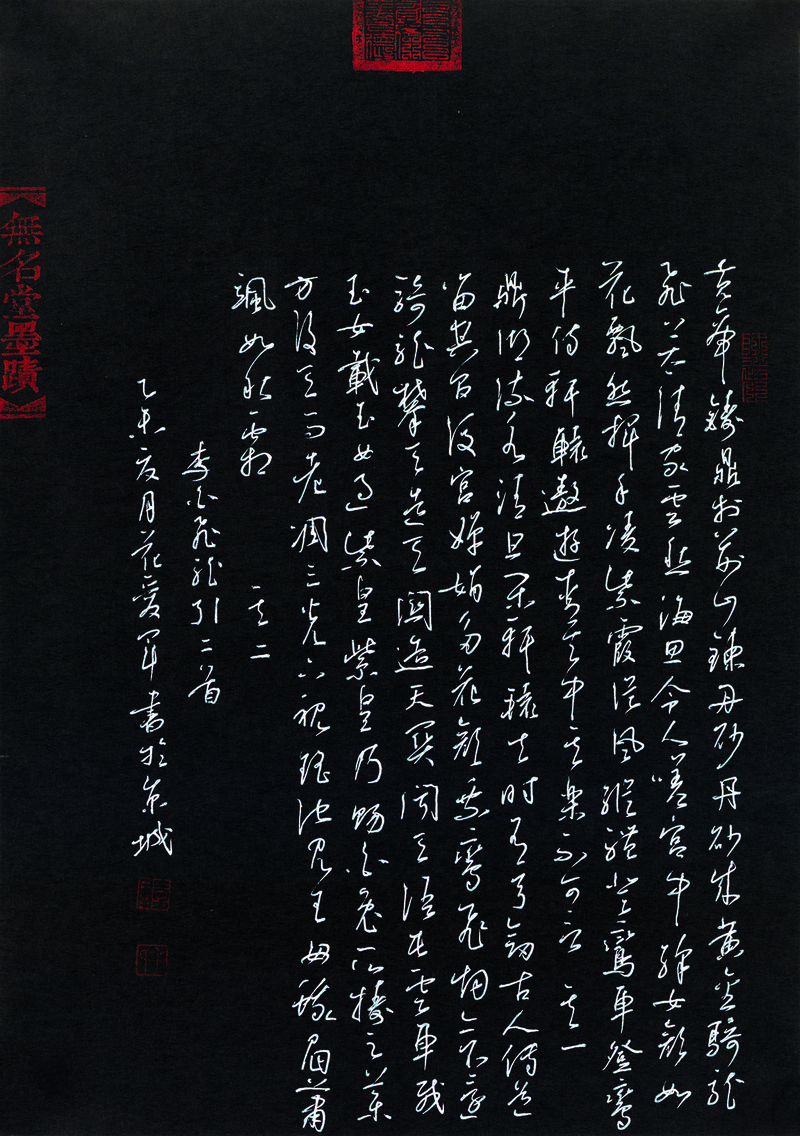 黄帝鑄鼎於荆山鍊丹砂丹砂成黄金騎龍
飛上太清家雲愁海思令人嗟宫中綵女顔如
花飄然揮手凌紫霞從風縱體登鸞車登鸞
車侍軒轅遨遊青天中其樂不可言 其一
鼎湖流水清且閑軒轅去時有弓劍古人傳道
留其間後宫嬋娟多花顔乘鸞飛烟亦不還
騎龍攀天造天關造天關聞天語屯雲車載
玉女載玉女過紫皇紫皇乃賜白兔所擣之藥
方後天而老凋三光下視瑶池見王母蛾眉蕭
颯如秋霜 其二
李白飛龍引二首
乙未夏月花愛軍書於京城
無名堂墨蹟